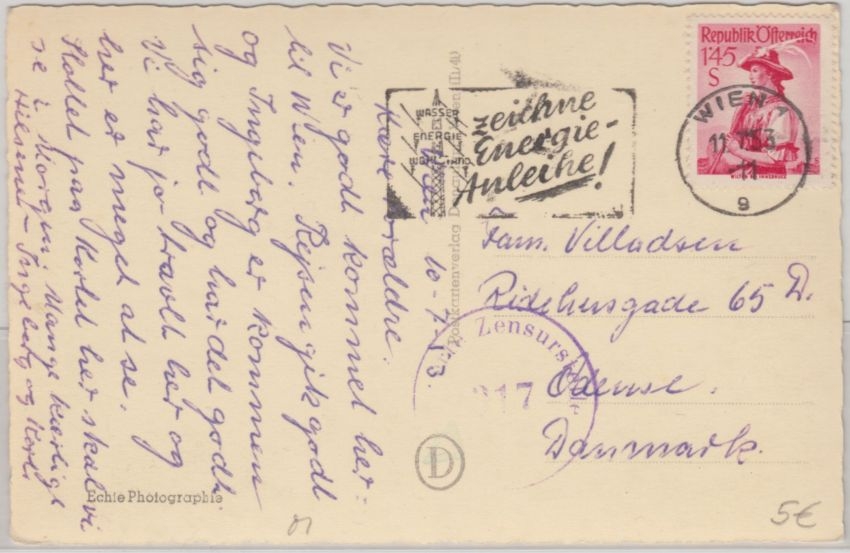 Wien 10-7-53.
Kære Forældre.
Vi er godt kommet her-
til Wien. Rejsen gik godt
og Ingeborg er kommen
sig godt og har det godt.
Vi har jo travlt her og
her er meget at se.
Slottet paa Kortet her skal vi
se i Morgen. Mange kærlige
Hilsener Ingeborg og
Echte Photographie
Postkartenverlag
D
WASSER
ENERGIE
WOHLSTAND
zeichne
Energie-
Anleihe!
Republik Österreich
1'45
S
WIEN
11. VII. 53
11
g
Fam. Villadsen
65 D.
Odense.
Danmark.
Zensurstelle
317
5€